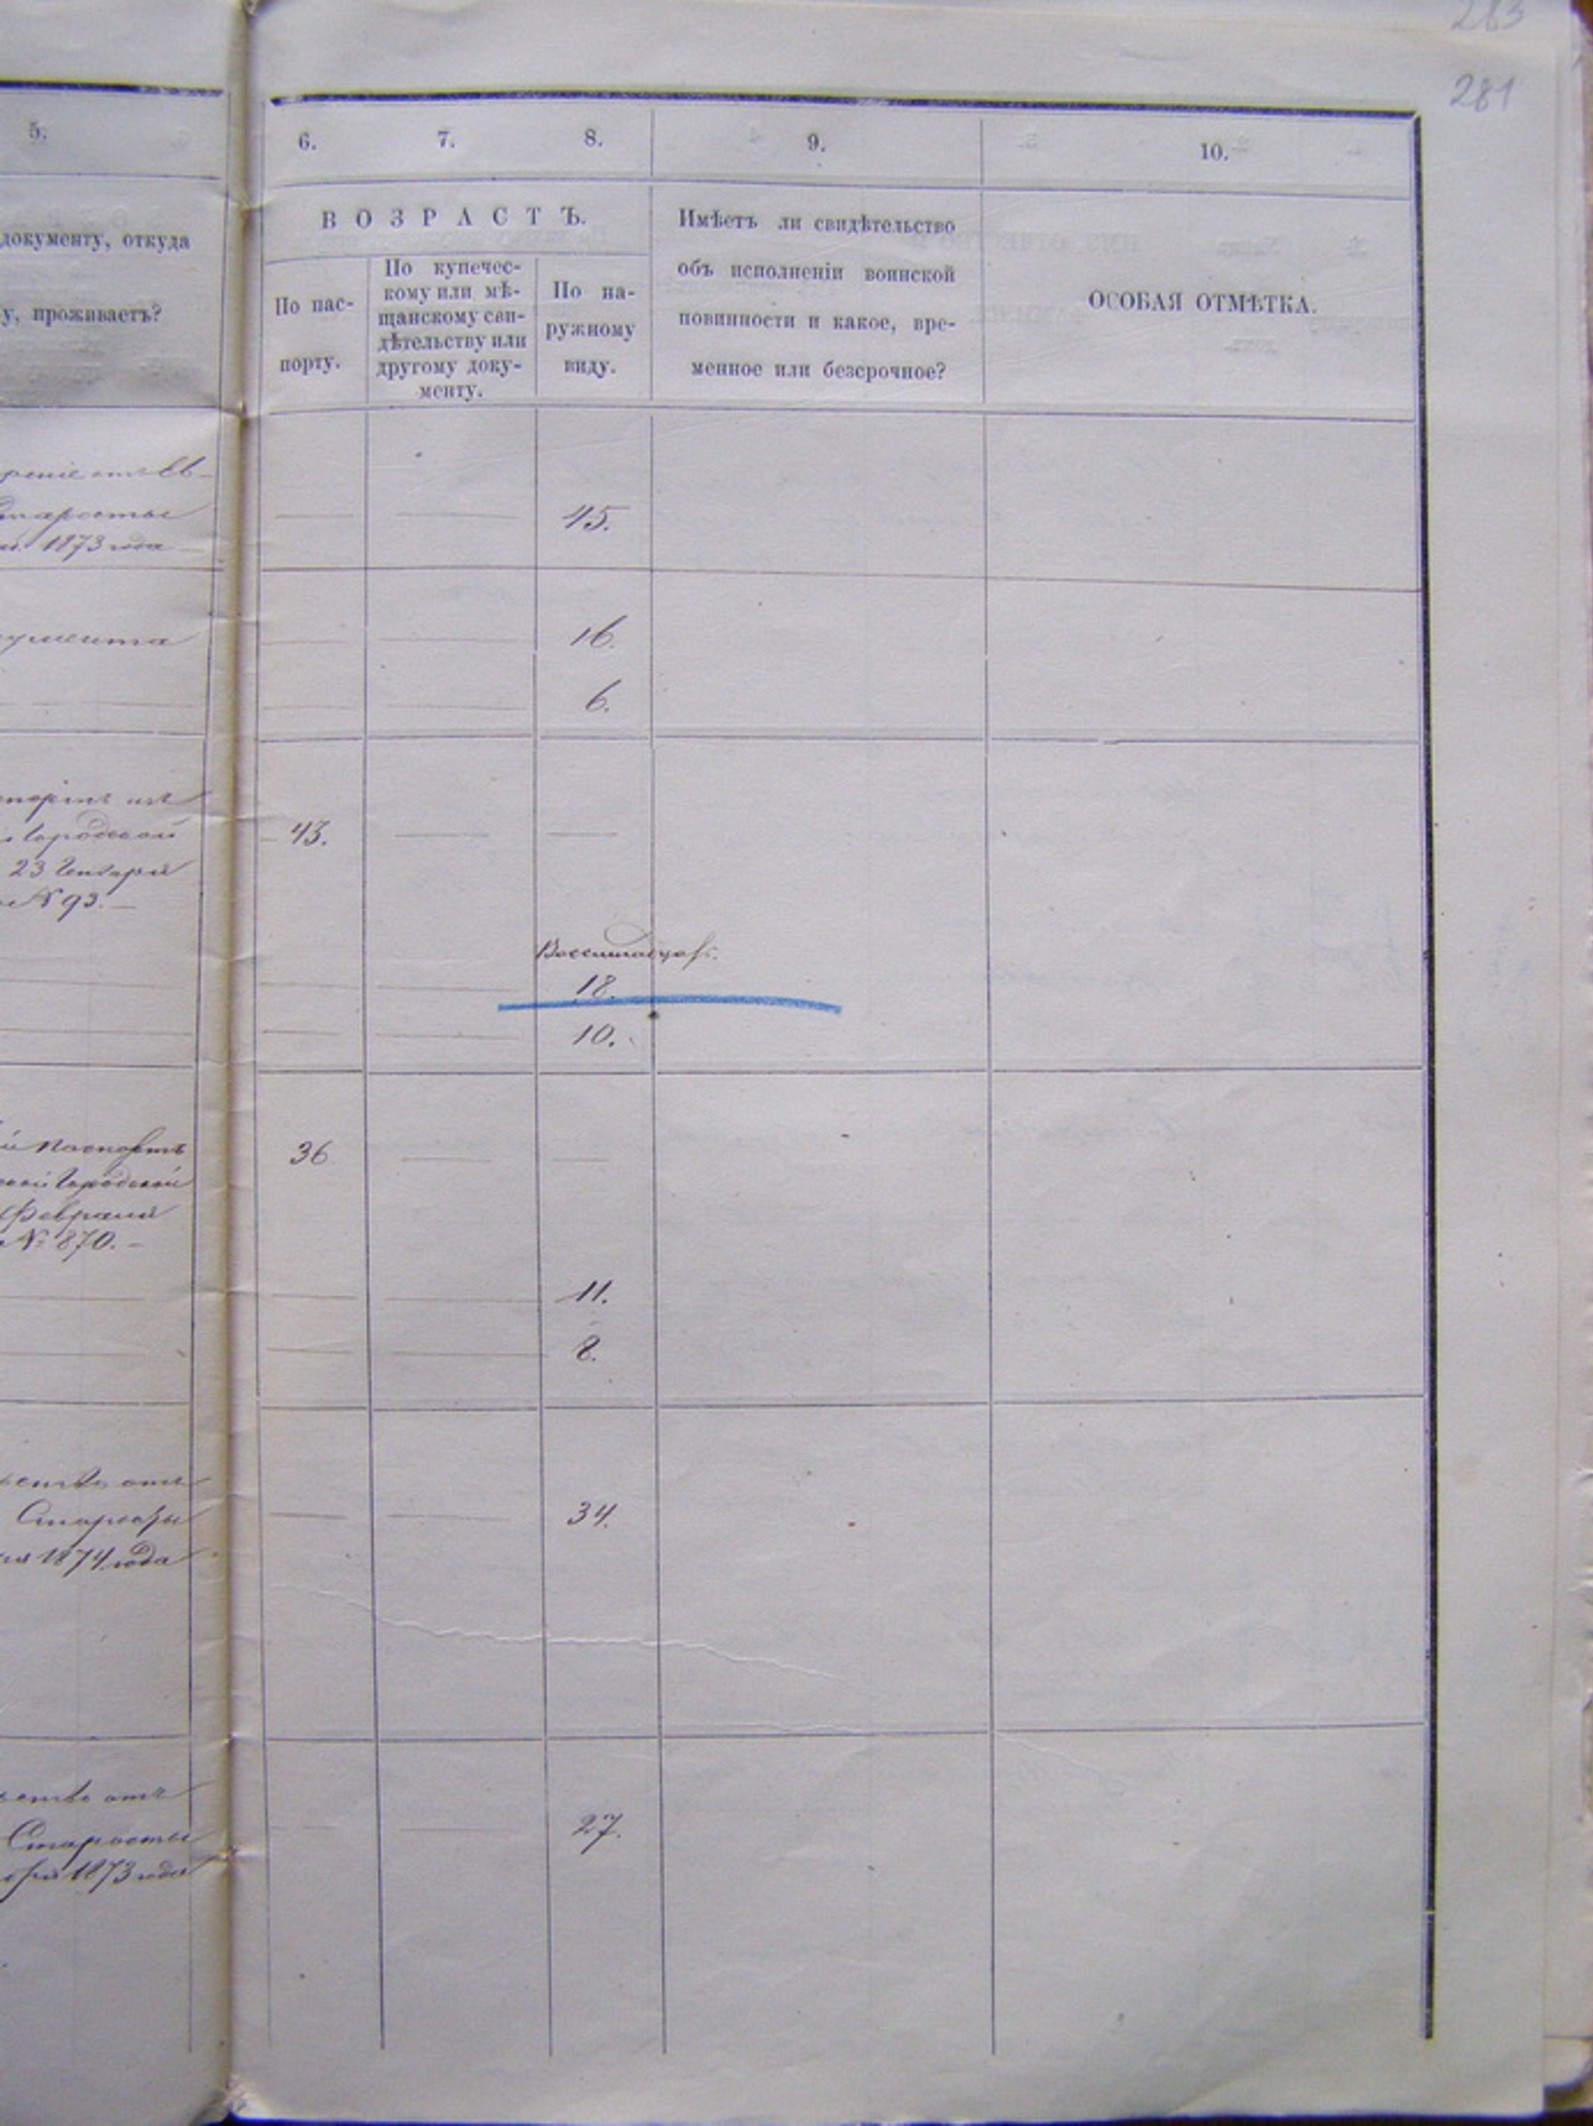 283
281
5.
6. 7. 8. 9. 10.
документу, откуда
у, проживаетъ?
ВОЗРАСТЪ.
По пас-
порту.
По купечес-
кому или мѣ-
щанскому сви-
дѣтельству или
другому доку-
менту.
По на-
ружному
виду.
Имѣетъ ли свидѣтельство
объ исполненіи воинской
повинности и какое, вре-
менное или безсрочное?
ОСОБАЯ ОТМѢТКА.
1873 года
45.
16.
6.
Городской
23 Генваря
№ 93.
43.
18.
10.
Паспортъ
Городской
Февраля
№ 870.
36
11.
8.
отъ
Старосты
1874 года
34.
отъ
Старосты
1873 года
27.